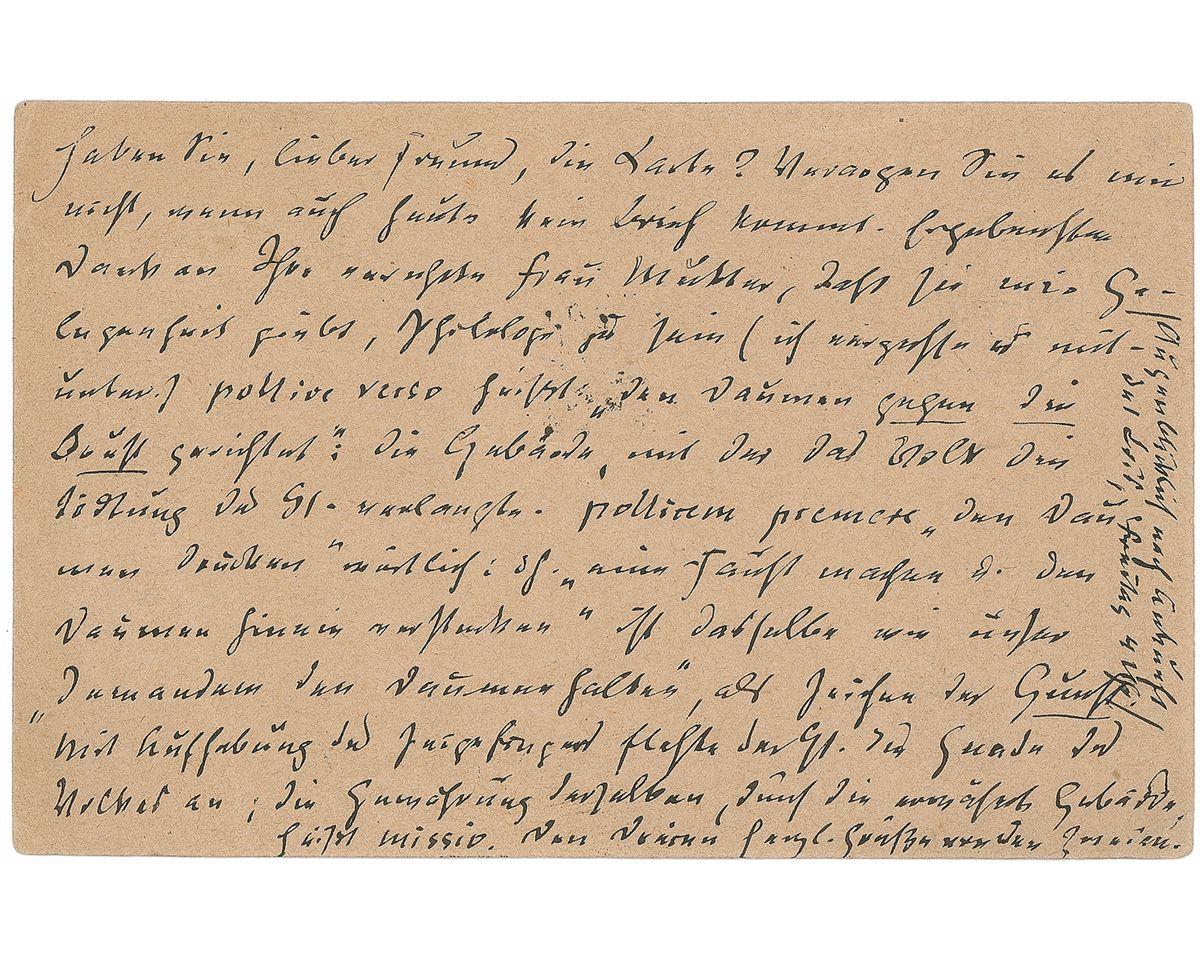 Haben Sie, lieber Freund, die Karte? Verargen Sie es mir
nicht, wenn auch heute kein Brief kommt. Ergebensten
Dank an Ihre verehrte Frau Mutter, daß sie mir Ge-
legenheit giebt, Philologe zu sein (ich vergesse es mit-
unter.) pollice verso heißt: „den Daumen gegen die
Brust gerichtet“: die Gebärde, mit der das Volk die
Tödtung des Gl. verlangte. pollicem premere „den Dau-
men drücken“ wörtlich: dh. „eine Faust machen u. den
Daumen hinein verstecken“ ist dasselbe wie unser
„Jemandem den Daumen halten“, als Zeichen der Gunst
Mit Aufhebung des Zeigefingers flehte der Gl. die Gnade des
Volkes an; die Gewährung derselben, durch die erwähnte Gebärde,
heißt missio. Den Dreien herzl. Grüße von den Zweien.
(Augenblicklich nach Ankunft
des Briefs, Freitag 4 Uhr)